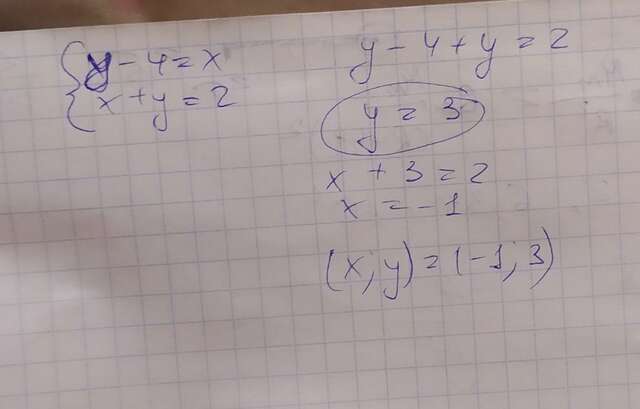 y - 4 = x
x + y = 2
y - 4 + y = 2
y = 3
x + 3 = 2
x = -1
(x; y) = (-1; 3)